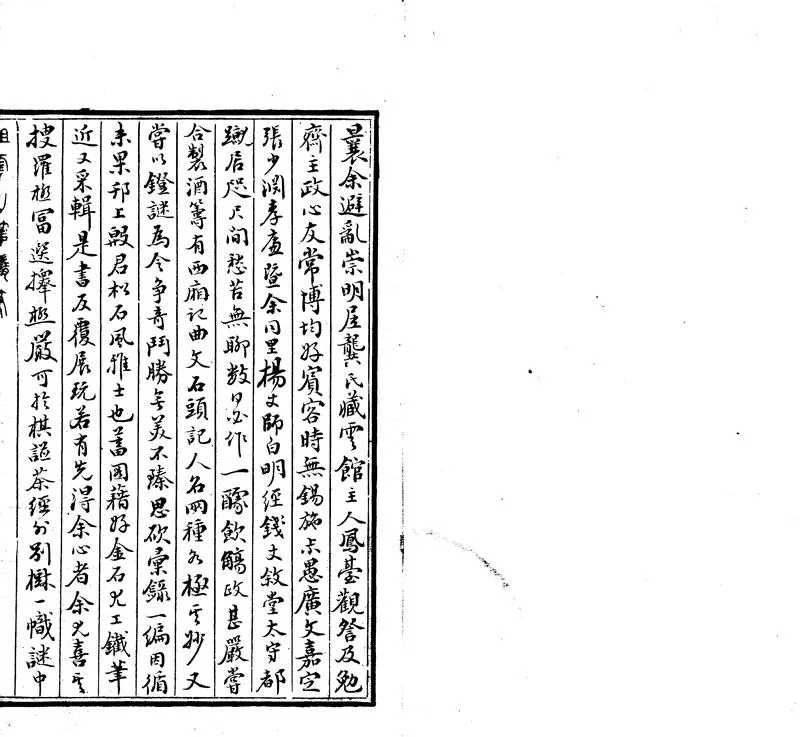 曩余避亂崇明居龔氏藏雲館主人鳳臺觀詧及勉
齋主政心友常博均好賓客時無錫施志愚廣文嘉定
張少淵孝廉暨余同里楊丈師白明經錢丈敘堂太守都
蹴居咫尺間愁苦無聊數日必作一醵飲觴政甚嚴嘗
合製酒籌有西廂記曲文石頭記人名兩種各極其妙又
嘗以鐙謎為令爭奇鬥勝無美不臻思欲彙錄一編因循
未果邗上殷君松石風雅士也蓄圖籍好金石尤工鐵筆
近又采輯是書反覆展玩若有先得余心者余尤喜其
搜羅極富選擇極嚴可於棋譜茶經外別樹一幟謎中